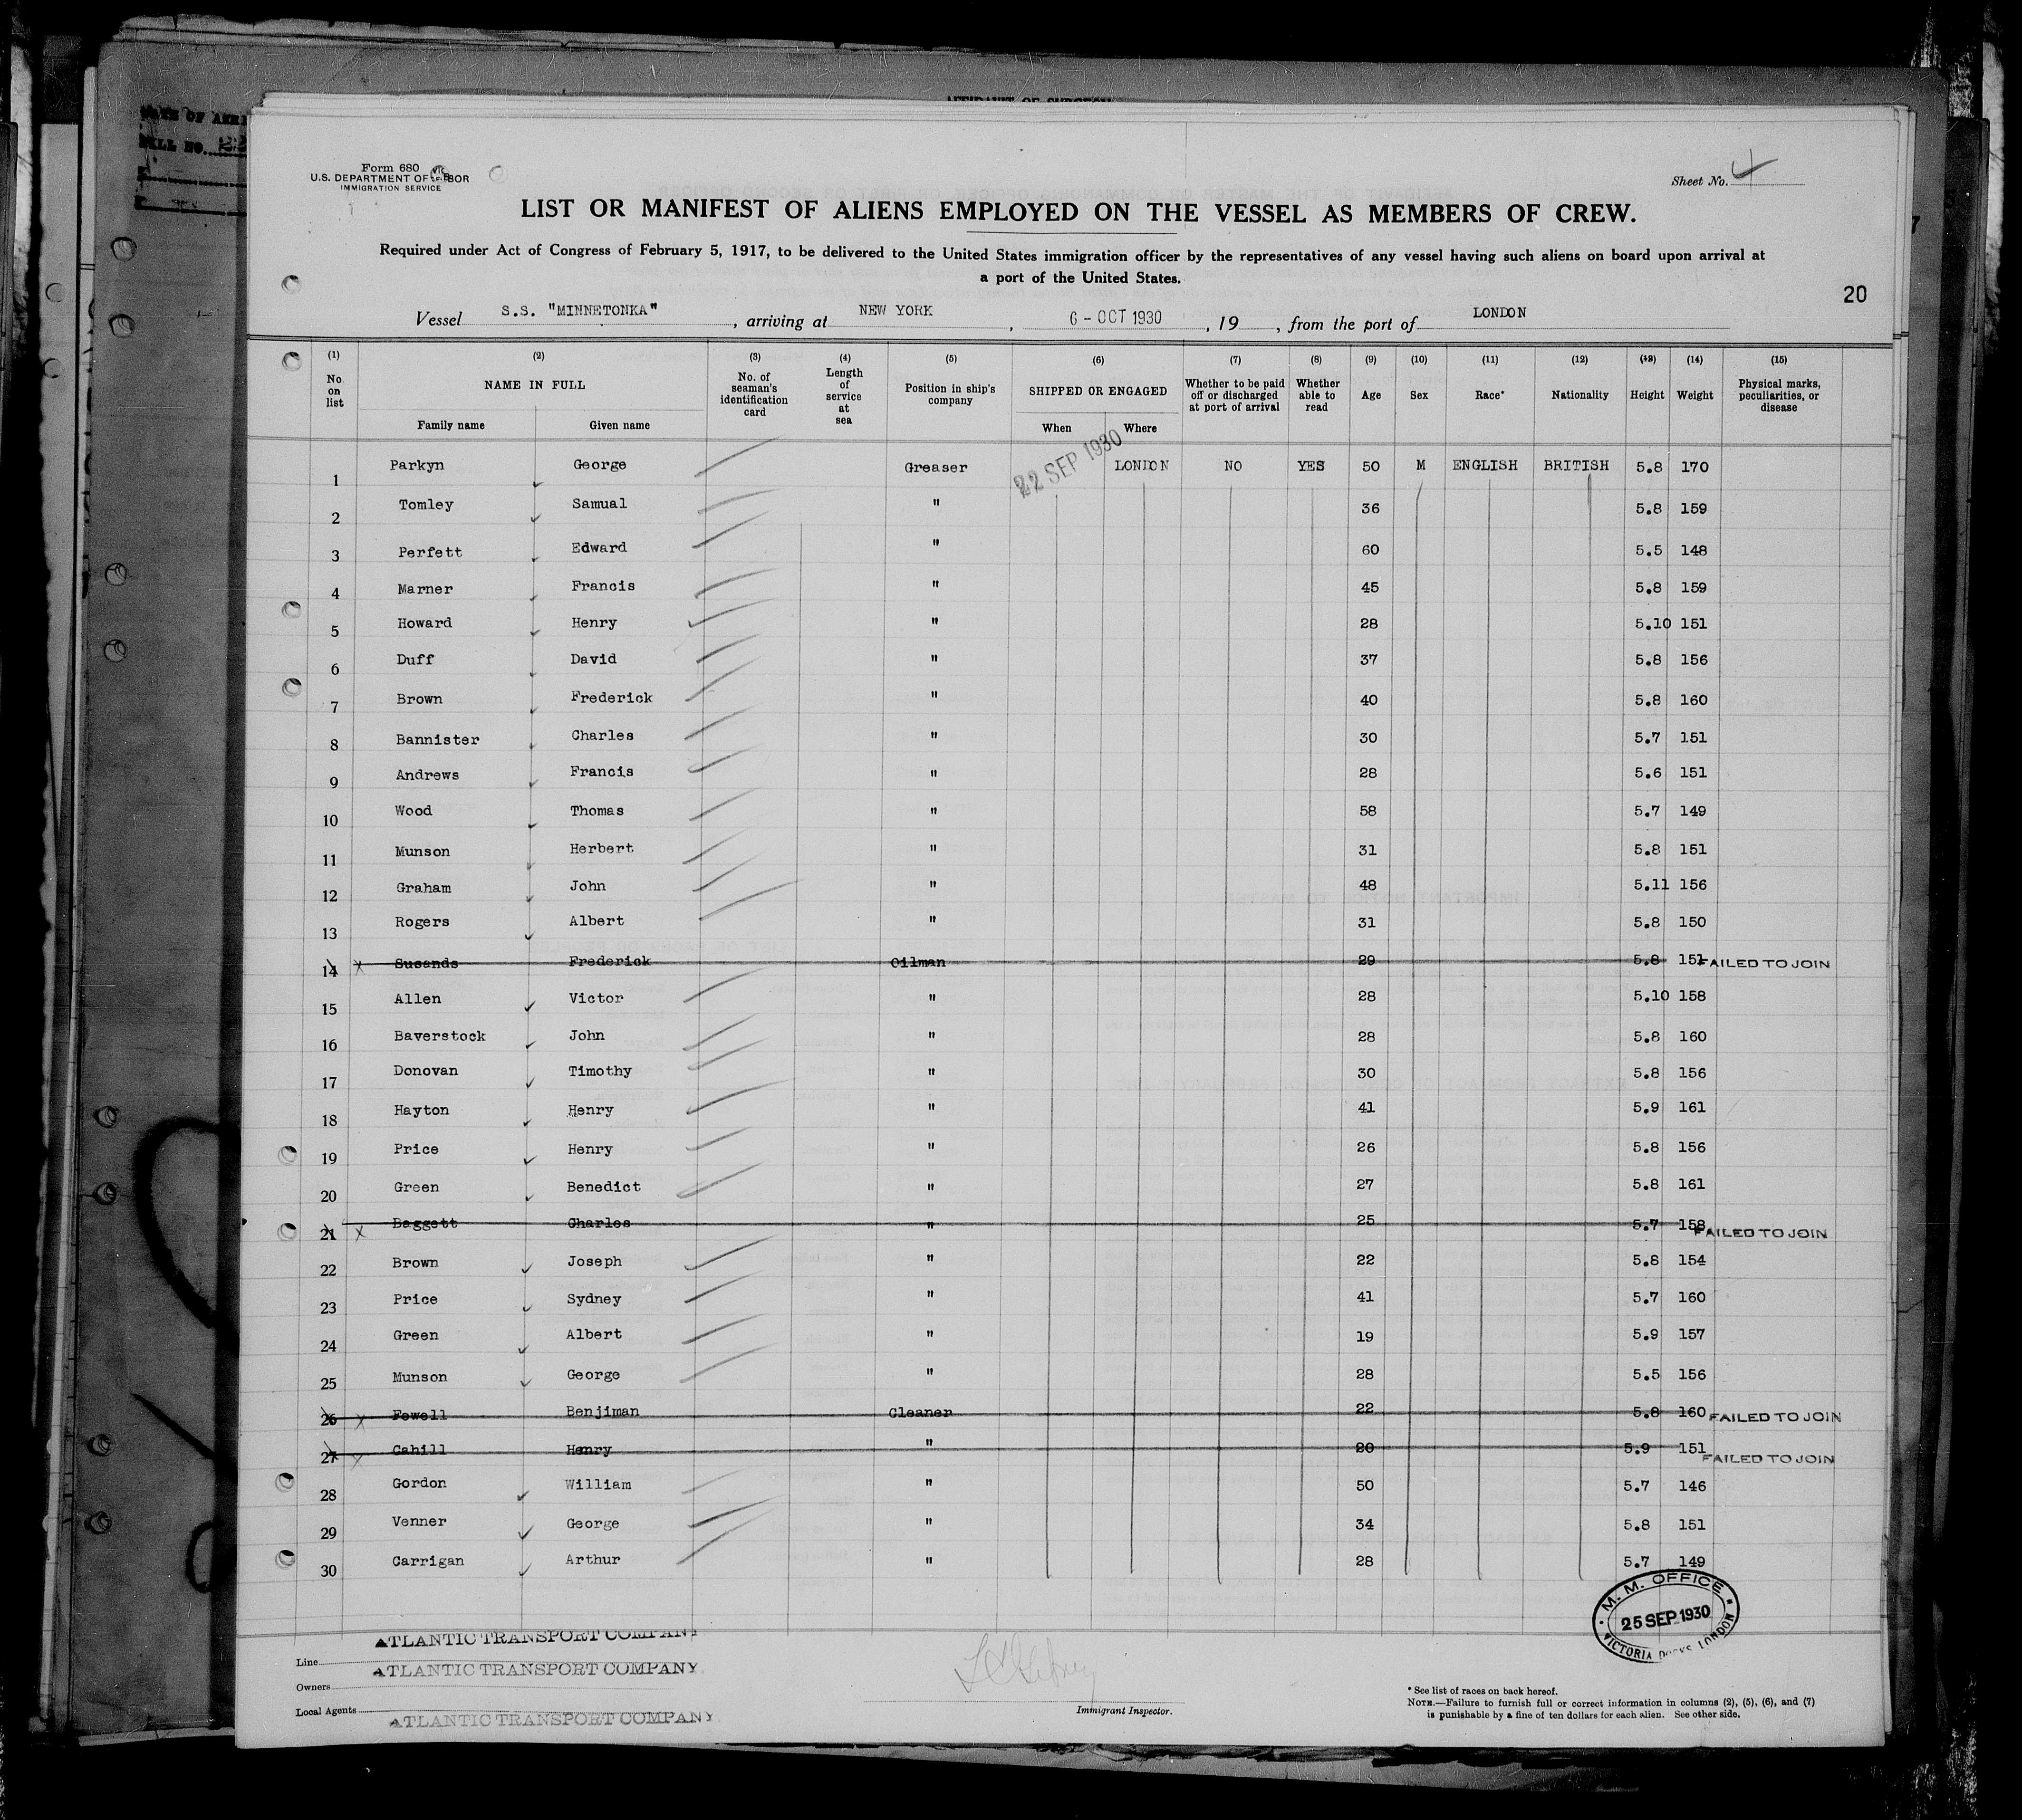 AFFIDAVIT OF SURGEON
DATE OF ARRI
BILL NO.
Form 680
U.S. DEPARTMENT OF LABOR
IMMIGRATION SERVICE
Sheet No. 4
LIST OR MANIFEST OF ALIENS EMPLOYED ON THE VESSEL AS MEMBERS OF CREW.
Required under Act of Congress of February 5, 1917, to be delivered to the United States immigration officer by the representatives of any vessel having such aliens on board upon arrival at
a port of the United States.
20
Vessel S.S. "MINNETONKA", arriving at NEW YORK, 6 - OCT 1930, 19 , from the port of LONDON
(1) (2) (3) (4) (5) (6) (7) (8) (9) (10) (11) (12) (13) (14) (15)
No. on list NAME IN FULL No. of seaman's identification card Length of service at sea Position in ship's company SHIPPED OR ENGAGED Whether to be paid off or discharged at port of arrival Whether able to read Age Sex Race* Nationality Height Weight Physical marks, peculiarities, or disease
Family name Given name When Where
1 Parkyn George Greaser 22 SEP 1930 LONDON NO YES 50 M ENGLISH BRITISH 5.8 170
2 Tomley Samual " 36 5.8 159
3 Perfett Edward " 60 5.5 148
4 Marner Francis " 45 5.8 159
5 Howard Henry " 28 5.10 151
6 Duff David " 37 5.8 156
7 Brown Frederick " 40 5.8 160
8 Bannister Charles " 30 5.7 151
9 Andrews Francis " 28 5.6 151
10 Wood Thomas " 58 5.7 149
11 Munson Herbert " 31 5.8 151
12 Graham John " 48 5.11 156
13 Rogers Albert " 31 5.8 150
14 Susands Frederick Oilman 29 5.8 151 FAILED TO JOIN
15 Allen Victor " 28 5.10 158
16 Baverstock John " 28 5.8 160
17 Donovan Timothy " 30 5.8 156
18 Hayton Henry " 41 5.9 161
19 Price Henry " 26 5.8 156
20 Green Benedict " 27 5.8 161
21 Baggett Charles " 25 5.7 158 FAILED TO JOIN
22 Brown Joseph " 22 5.8 154
23 Price Sydney " 41 5.7 160
24 Green Albert " 19 5.9 157
25 Munson George " 28 5.5 156
26 Fowell Benjiman Cleaner 22 5.8 160 FAILED TO JOIN
27 Cahill Henry " 20 5.9 151 FAILED TO JOIN
28 Gordon William " 50 5.7 146
29 Venner George " 34 5.8 151
30 Carrigan Arthur " 28 5.7 149
M. M. OFFICE
25 SEP 1930
VICTORIA DOCKS LONDON
Line ATLANTIC TRANSPORT COMPANY
Owners ATLANTIC TRANSPORT COMPANY
Local Agents ATLANTIC TRANSPORT COMPANY
Immigrant Inspector.
* See list of races on back hereof.
NOTE.—Failure to furnish full or correct information in columns (2), (5), (6), and (7)
is punishable by a fine of ten dollars for each alien. See other side.